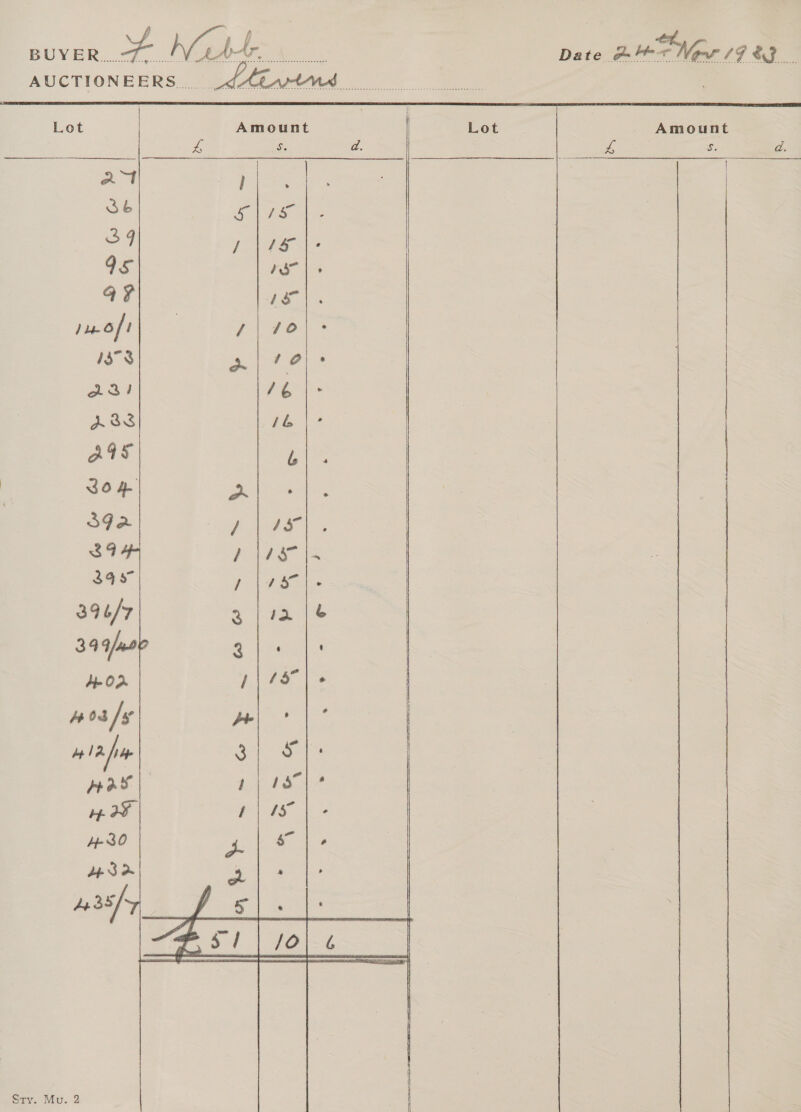 BUYER F Webb. Date 24th Nov 1933
AUCTIONEERS Stevens
Lot Amount Lot Amount
£ s. d. £ s. d.
27 1 . .
36 5 15 .
39 1 15 .
95 15 .
98 15 .
140/1 1 10 .
153 2 10 .
231 16 .
233 16 .
295 6 .
304 2 . .
392 1 15 .
394 1 15 .
395 1 15 .
396/7 3 12 6
399/400 3 . .
402 1 15 .
403/5 4 . .
412/14 3 5 .
425 1 15 .
428 1 15 .
430 2 5 .
432 2 . .
435/7 5 . .
£51 10 6
Sty. Mu. 2